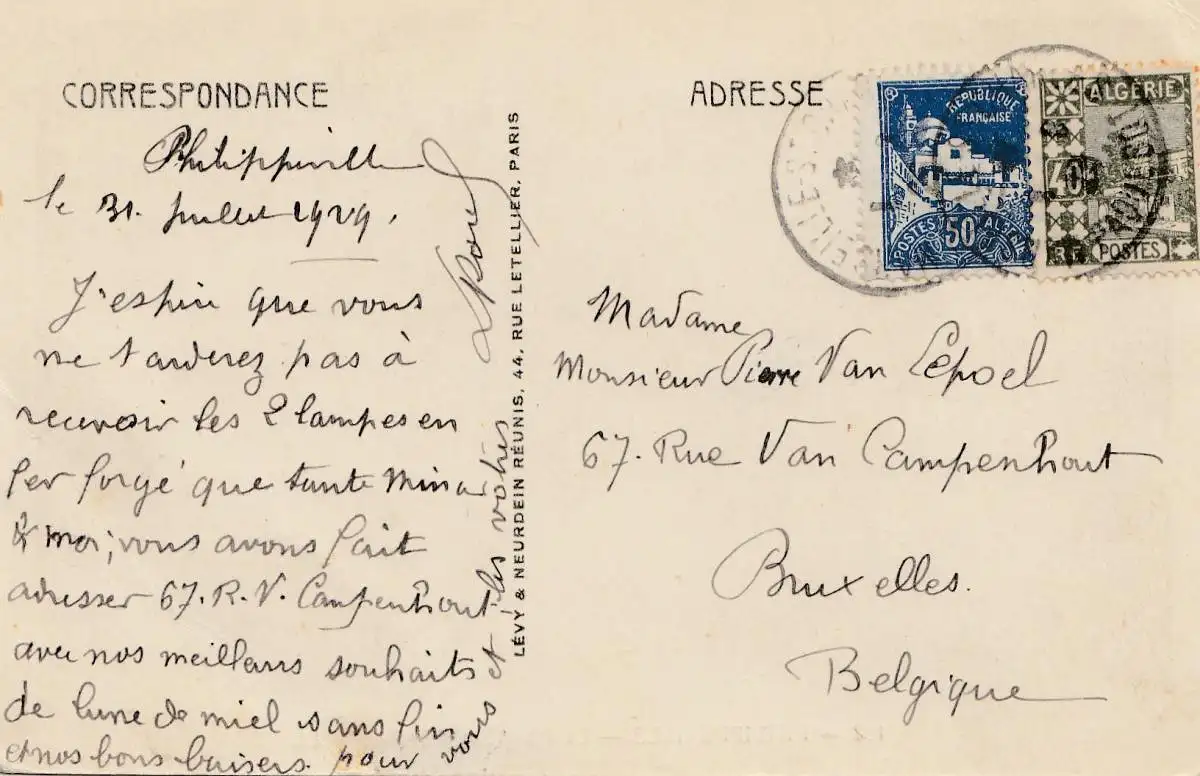 CORRESPONDANCE
Philippeville
le 31. Juillet 1929.
J'espère que vous
ne tarderez pas à
recevoir les 2 lampes en
fer forgé que tante Mina
& moi, vous avons fait
adresser 67. R. V. Campenhout
avec nos meilleurs souhaits
de lune de miel sans fin
et nos bons baisers pour vous
et les vôtres
LÉVY & NEURDEIN RÉUNIS, 44, RUE LETELLIER, PARIS
ADRESSE
RÉPUBLIQUE
FRANÇAISE
POSTES 50 ALGÉRIE
ALGÉRIE
40
POSTES
Madame
Monsieur Pierre Van Lepoel
67. Rue Van Campenhout
Bruxelles.
Belgique